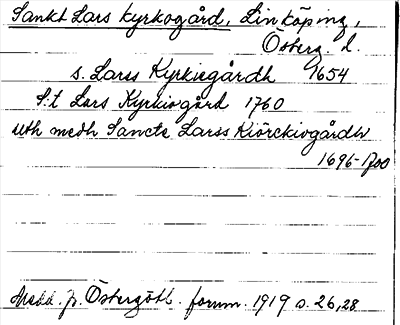 Sankt Lars kyrkogård, Linköping,
Österg. l.
s. Larss Kyrkiegårdh 1654
S:t Lars Kyrkiogård 1760
uth medh Sancte Larss Kiörckiogårdh
1696-1700
Medd. fr. Östergötl. fornm. 1919 s. 26, 28